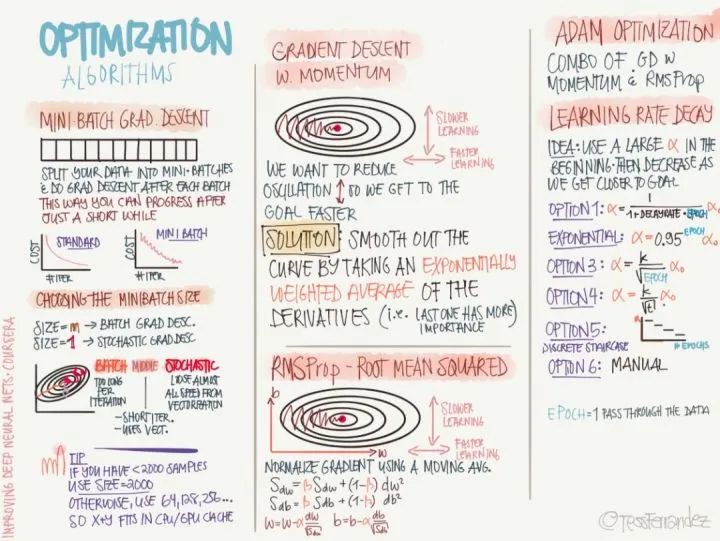 OPTIMIZATION
ALGORITHMS
MINI-BATCH GRAD. DESCENT
SPLIT YOUR DATA INTO MINI-BATCHES
& DO GRAD DESCENT AFTER EACH BATCH
THIS WAY YOU CAN PROGRESS AFTER
JUST A SHORT WHILE
COST
STANDARD
# ITER
COST
MINI BATCH
# ITER
CHOOSING THE MINIBATCH SIZE
SIZE=m → BATCH GRAD DESC.
SIZE=1 → STOCHASTIC GRAD DESC
BATCH MIDDLE STOCHASTIC
TOO LONG
PER
ITERATION
LOSE ALMOST
ALL SPEED FROM
VECTORIZATION
-SHORT ITER.
-USES VECT.
TIP
IF YOU HAVE <2000 SAMPLES
USE SIZE=2000
OTHERWISE, USE 64, 128, 256...
SO X+Y FITS IN CPU/GPU CACHE
IMPROVING DEEP NEURAL NETS · COURSERA
GRADIENT DESCENT
W. MOMENTUM
SLOWER
LEARNING
FASTER
LEARNING
WE WANT TO REDUCE
OSCILLATION ↕ SO WE GET TO THE
GOAL FASTER
SOLUTION: SMOOTH OUT THE
CURVE BY TAKING AN EXPONENTIALLY
WEIGHTED AVERAGE OF THE
DERIVATIVES (i.e. LAST ONE HAS MORE)
IMPORTANCE
RMSProp - ROOT MEAN SQUARED
b
w
SLOWER
LEARNING
FASTER
LEARNING
NORMALIZE GRADIENT USING A MOVING AVG.
Sdw = β Sdw + (1-β) dw²
Sdb = β Sdb + (1-β) db²
w = w-α dw/√Sdw b = b-α db/√Sdb
ADAM OPTIMIZATION
COMBO OF GD W
MOMENTUM & RMSProp
LEARNING RATE DECAY
IDEA: USE A LARGE α IN THE
BEGINNING. THEN DECREASE AS
WE GET CLOSER TO GOAL
OPTION 1: α = 1/(1+DECAYRATE·EPOCH) α₀
EXPONENTIAL: α = 0.95^EPOCH α₀
OPTION 3: α = k/√EPOCH α₀
OPTION 4: α = k/√t α₀
OPTION 5:
DISCRETE STAIRCASE
α
# EPOCHS
OPTION 6: MANUAL
EPOCH = 1 PASS THROUGH THE DATA
@TessFerrandez